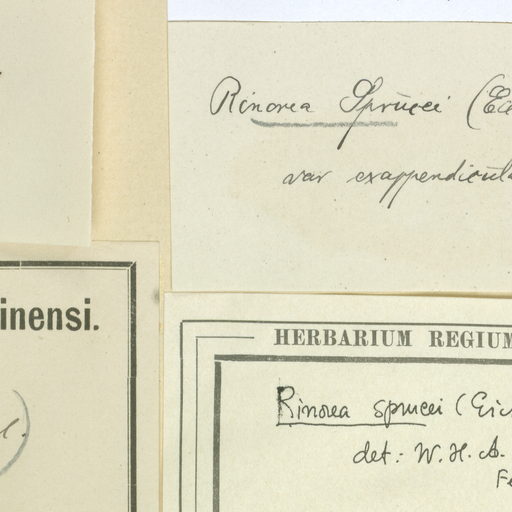 Rinorea Sprucei (E
var exappendicula
inensi.
l.)
HERBARIUM REGIUM
Rinorea sprucei (Eic
det: W. H. A.
Fe